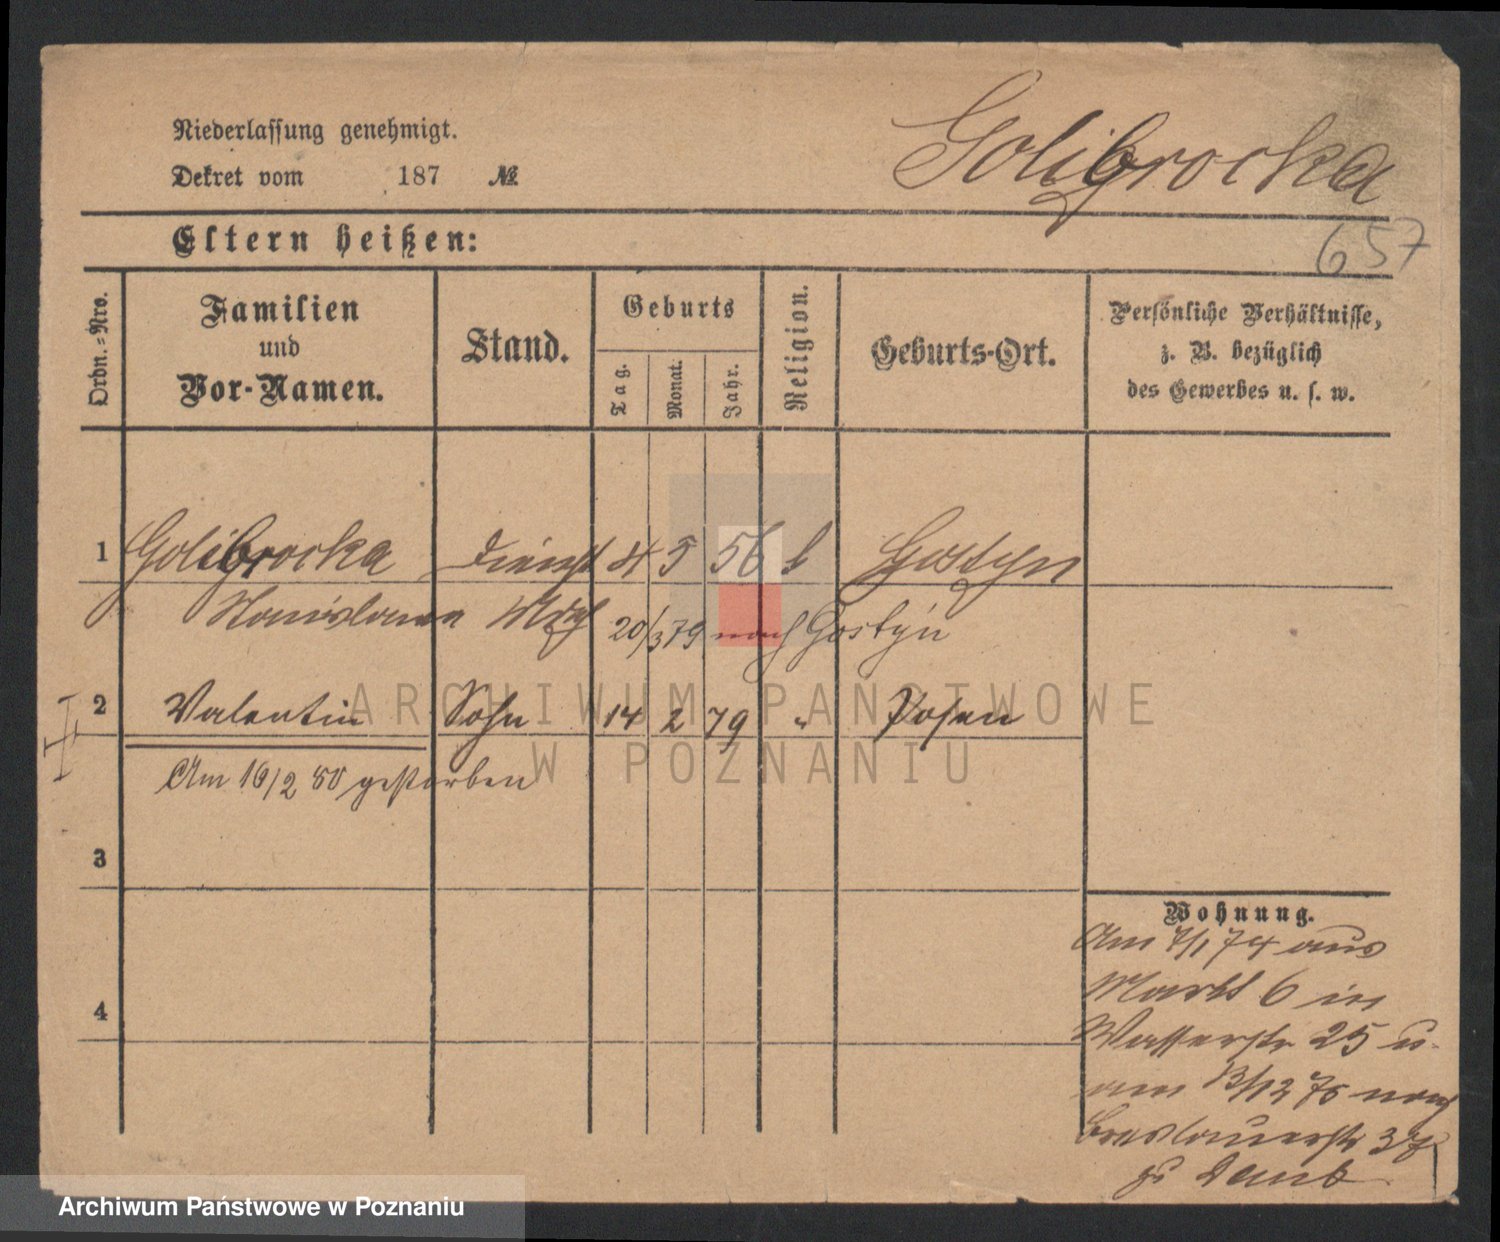 Niederlassung genehmigt.
Dekret vom 187 №
Golibrocka
657
Eltern heißen:
Ordn.-Nro.
Familien
und
Vor-Namen.
Stand.
Geburts
Tag.
Monat.
Jahr.
Religion.
Geburts-Ort.
Persönliche Verhältnisse,
z. B. bezüglich
des Gewerbes u. s. w.
1 Golibrocka Dienst 4 5 56 k Gostyn
Stanislawa 20/3 79 nach Gostyn
2 Valentin Sohn 14 2 79 " Posen
Am 16/2 80 gestorben
3
4
Wohnung.
Am 7/1 74 aus
Markt 6 in
Wasserstr 25 u.
am 13/12 76 nach
Breslauerstr 37
zu
ARCHIWUM PAŃSTWOWE
W POZNANIU
Archiwum Państwowe w Poznaniu